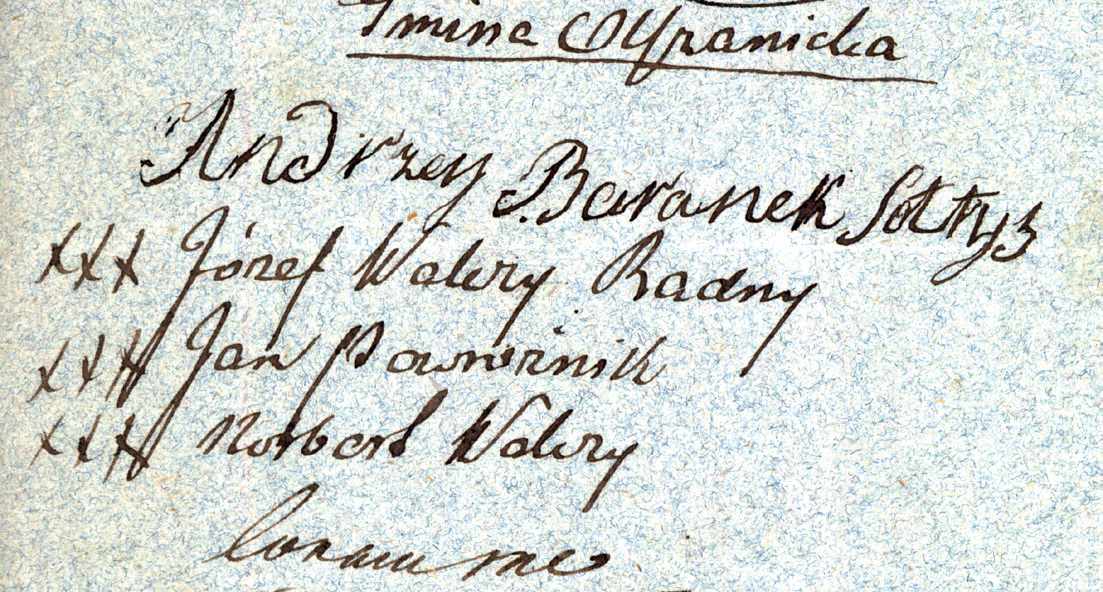 Gmina Ollpanicka
Andrzey Baranek Sołtys
xxx Józef Walery Radny
xxx Jan Powroźnik
xxx Norbert Walery
Coram me